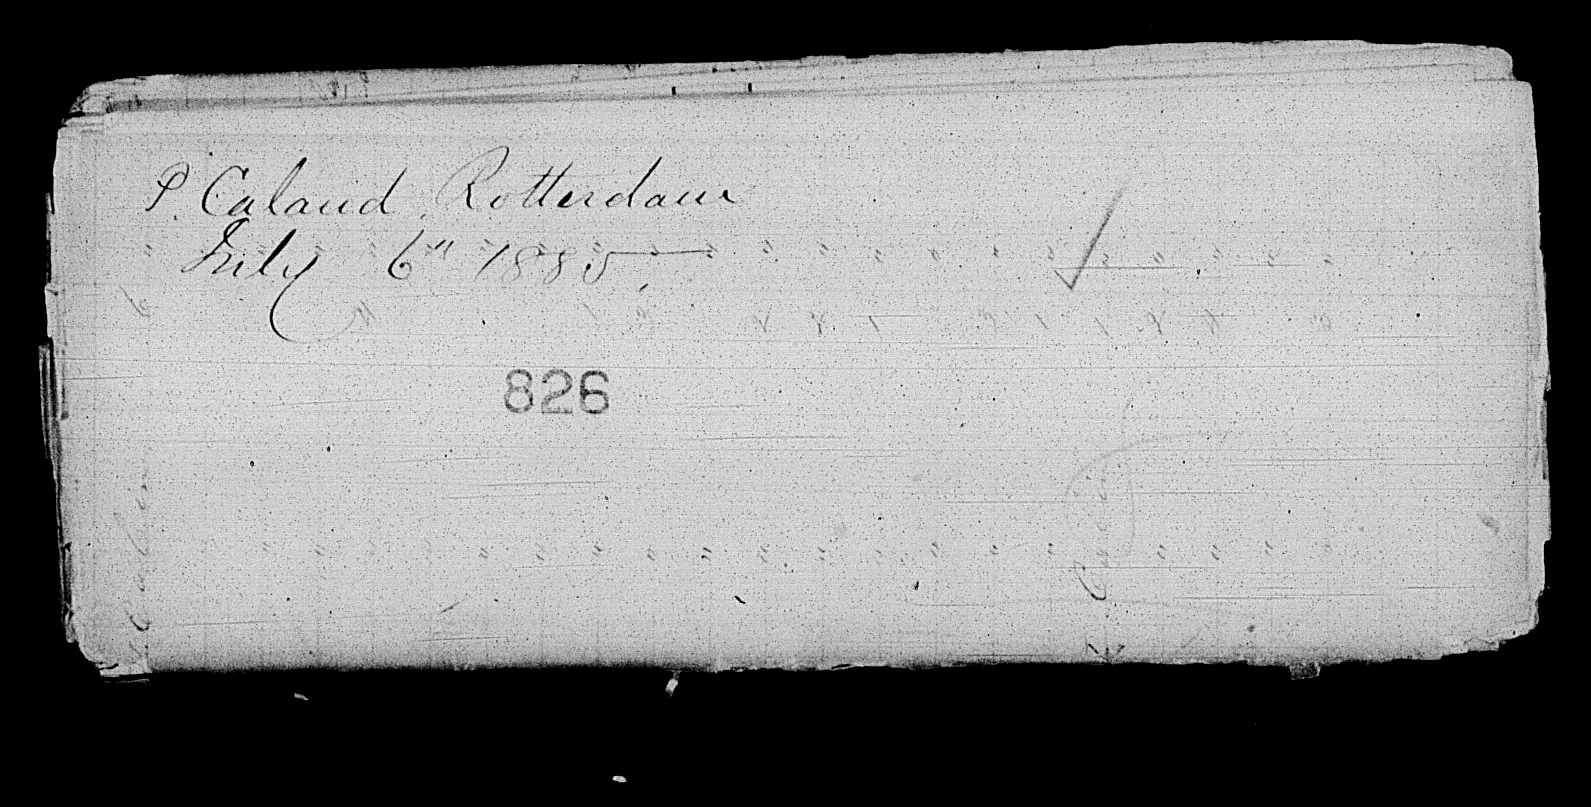 P. Caland, Rotterdam
July 6" 1885
826